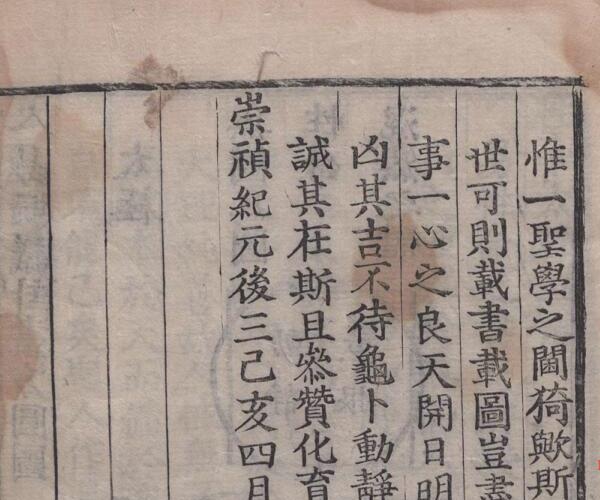 惟一聖學之閫猗歟斯
世可則載書載圖豈盡
事一心之良天開日明
凶其吉不待龜卜動靜
誠其在斯且叅贊化育
崇禎紀元後三己亥四月